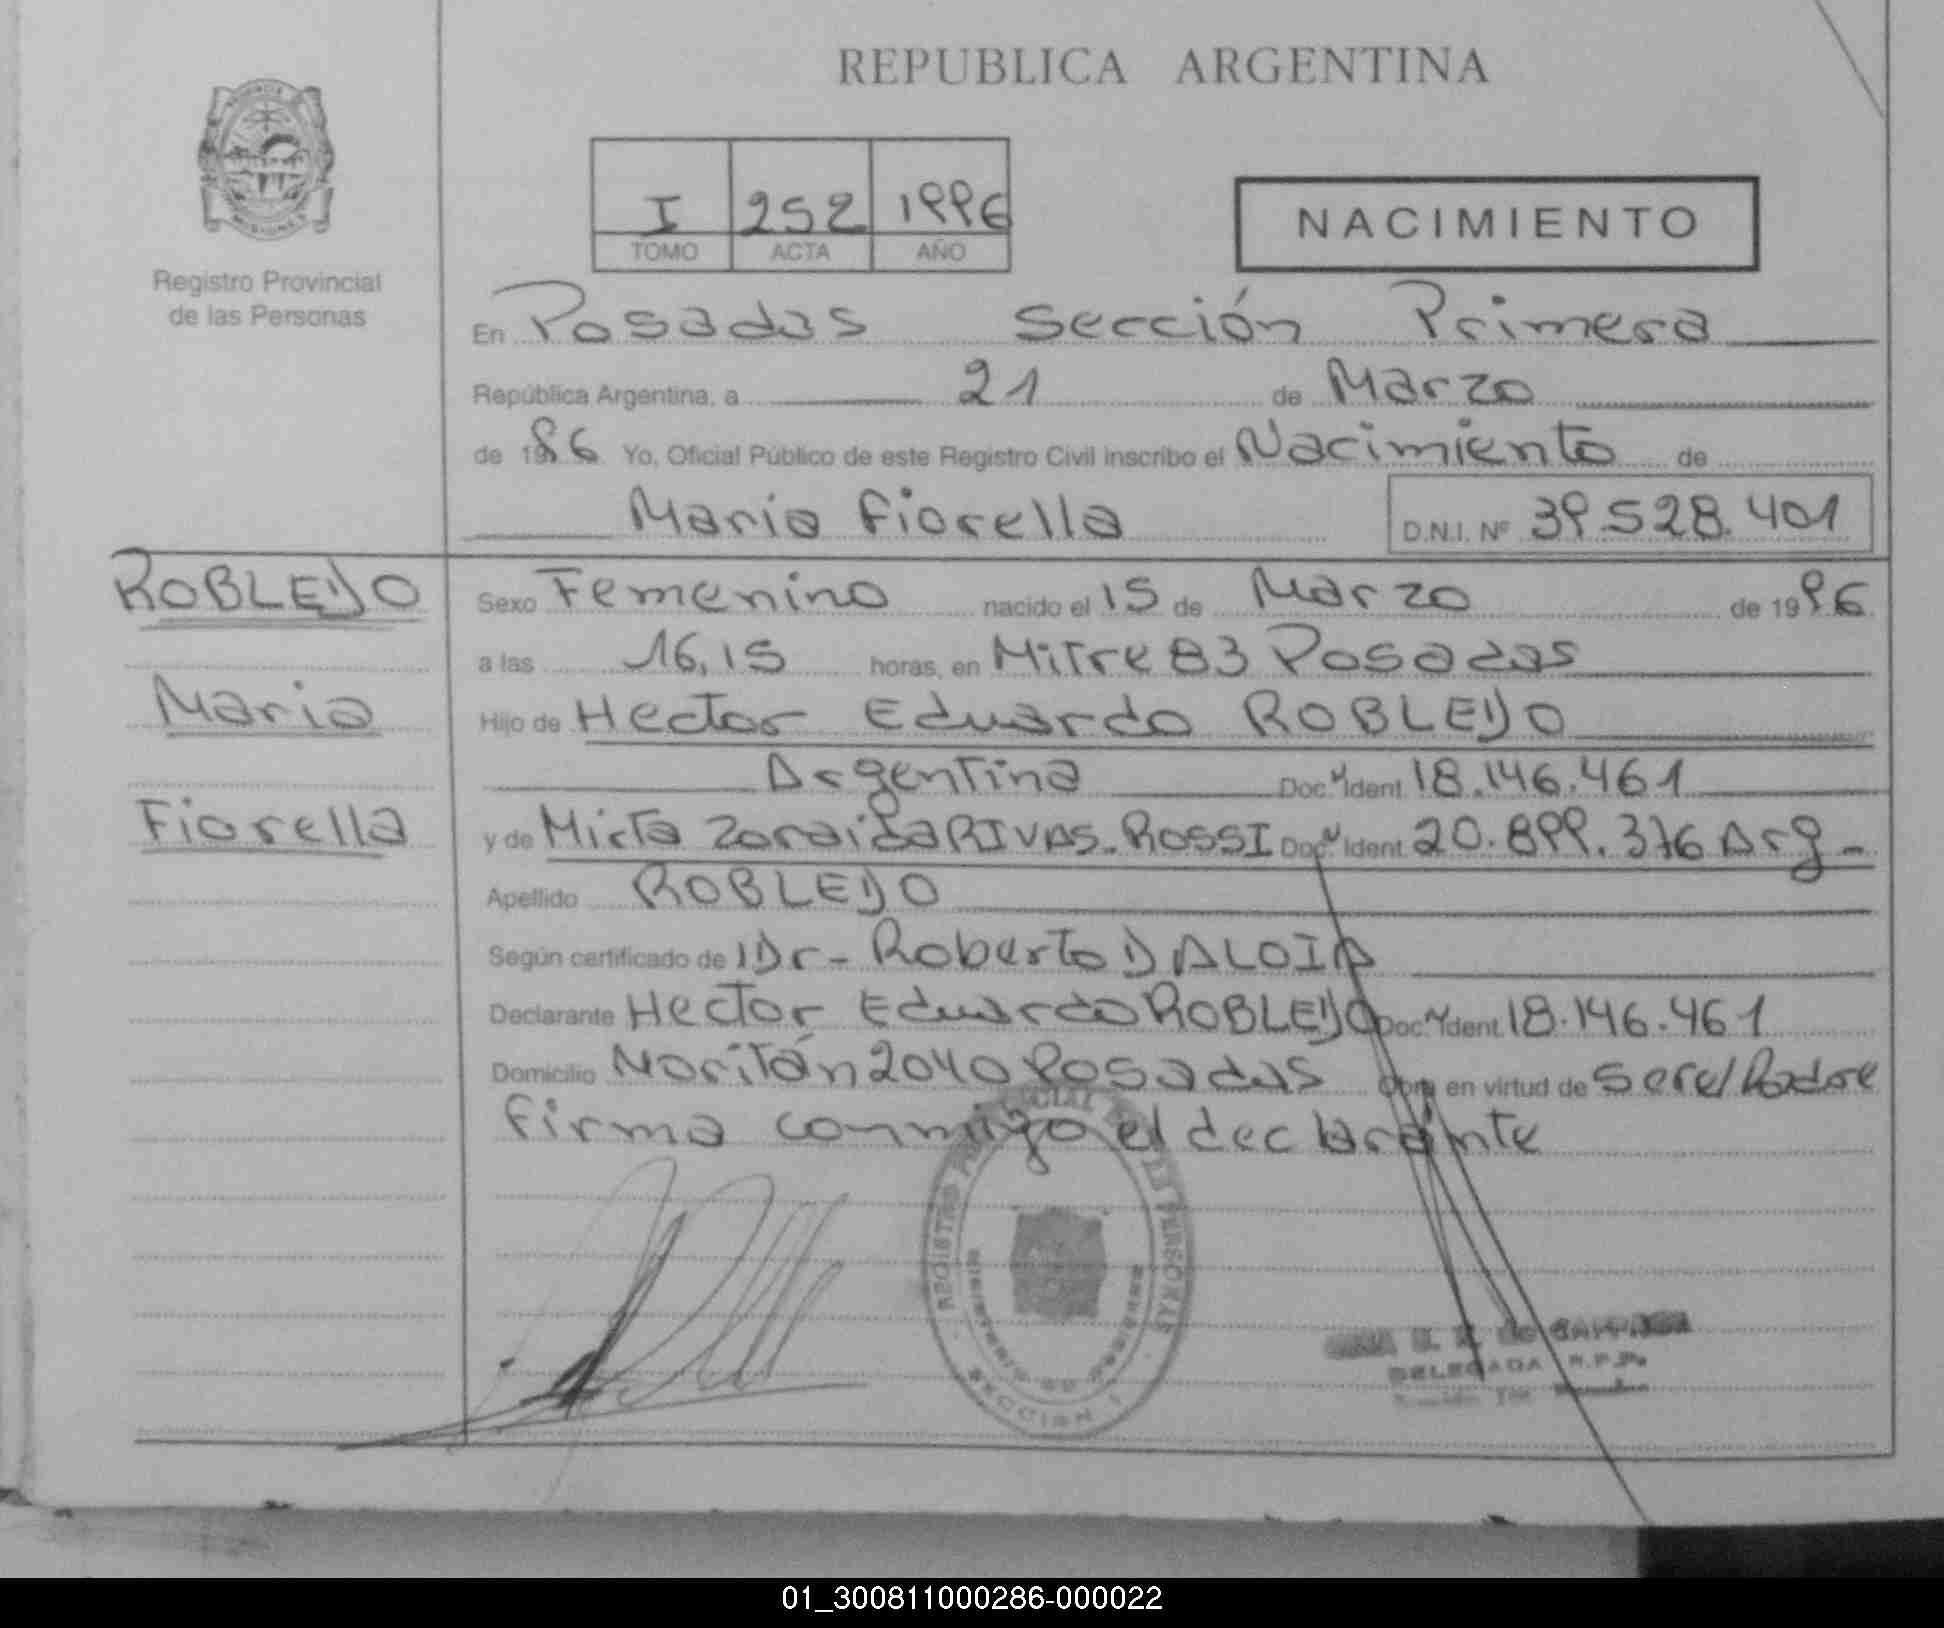 REPUBLICA ARGENTINA
Registro Provincial
de las Personas
I 252 1996
TOMO ACTA AÑO
NACIMIENTO
En Posadas Sección Primera
República Argentina, a 21 de Marzo
de 1996 Yo, Oficial Público de este Registro Civil inscribo el Nacimiento de
Maria Fiorella D.N.I. Nº 39.528.401
ROBLEDO
Maria
Fiorella
Sexo Femenino nacido el 15 de Marzo de 1996
a las 16,15 horas, en Mitre 83 Posadas
Hijo de Hector Eduardo ROBLEDO
Argentina Doc. Ident 18.146.461
y de Mirta Zoraida RIVAS-ROSSI Doc. Ident. 20.899.376 Arg-
Apellido ROBLEDO
Según certificado de Dr- Roberto DALOIA
Declarante Hector Eduardo ROBLEDO Doc. Ident. 18.146.461
Domicilio Moritán 2040 Posadas Obra en virtud de ser el Padre
firma conmigo el declarante
REGISTRO PERSONAS
SECCION 1
DELEGADA R.P.P.
01_300811000286-000022